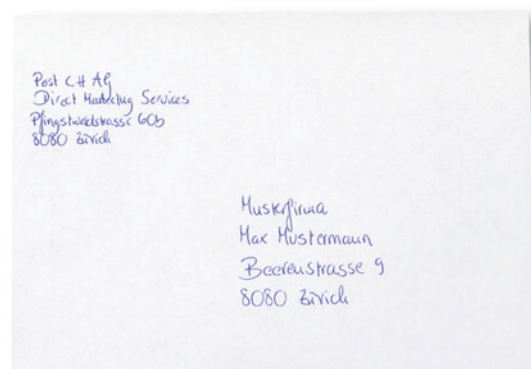 Post CH AG
Direct Marketing Services
Pfingstweidstrasse 60b
8080 Zürich
Musterfirma
Max Mustermann
Beerenstrasse 9
8080 Zürich